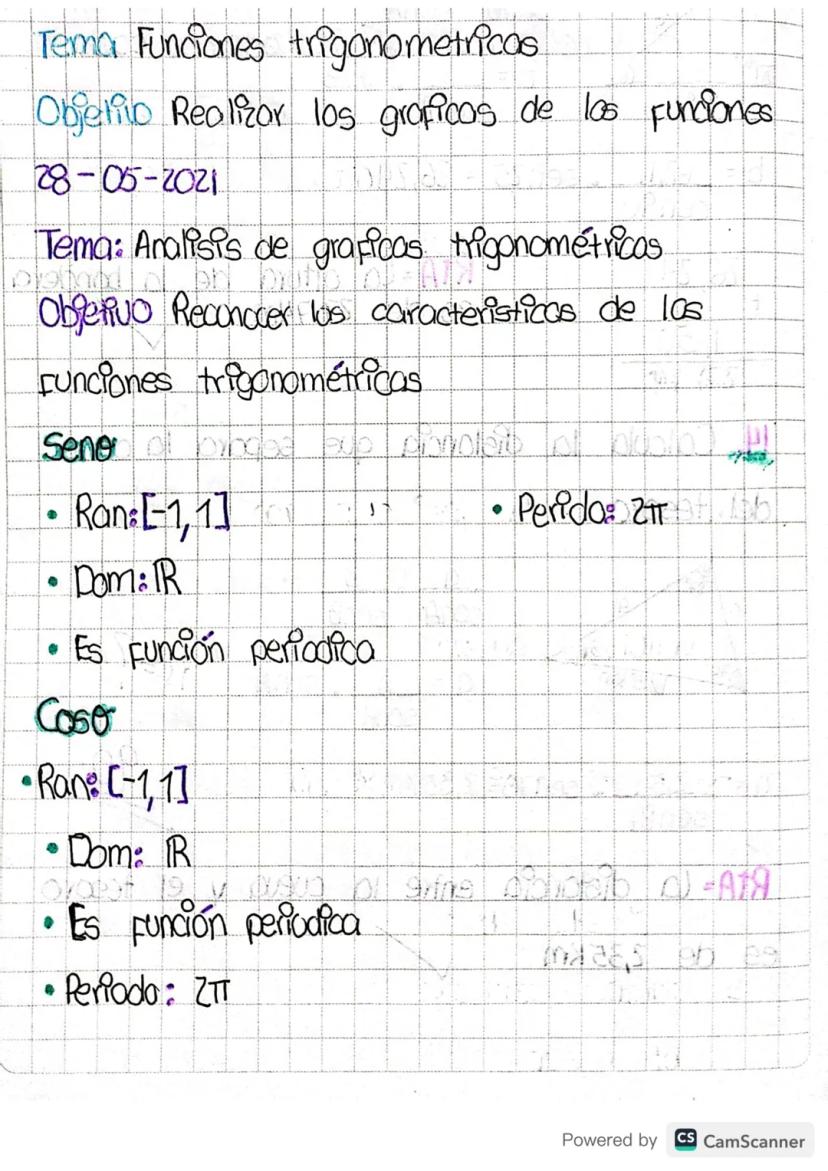 Tema Funciones trigonometricas
Objetivo Realizar los graficos de las funciones
28-05-2021
Tema: Analisis de graficas trigonométricas
Objetivo Reconocer las caracteristicas de las
funciones trigonométricas
Seno
• Ran:[-1,1]
• Perido: 2π
• Dom: ℝ
• Es función periodica
Coso
• Ran: [-1,1]
• Dom: ℝ
• Es función periodica
• Periodo: 2π
Powered by CS CamScanner